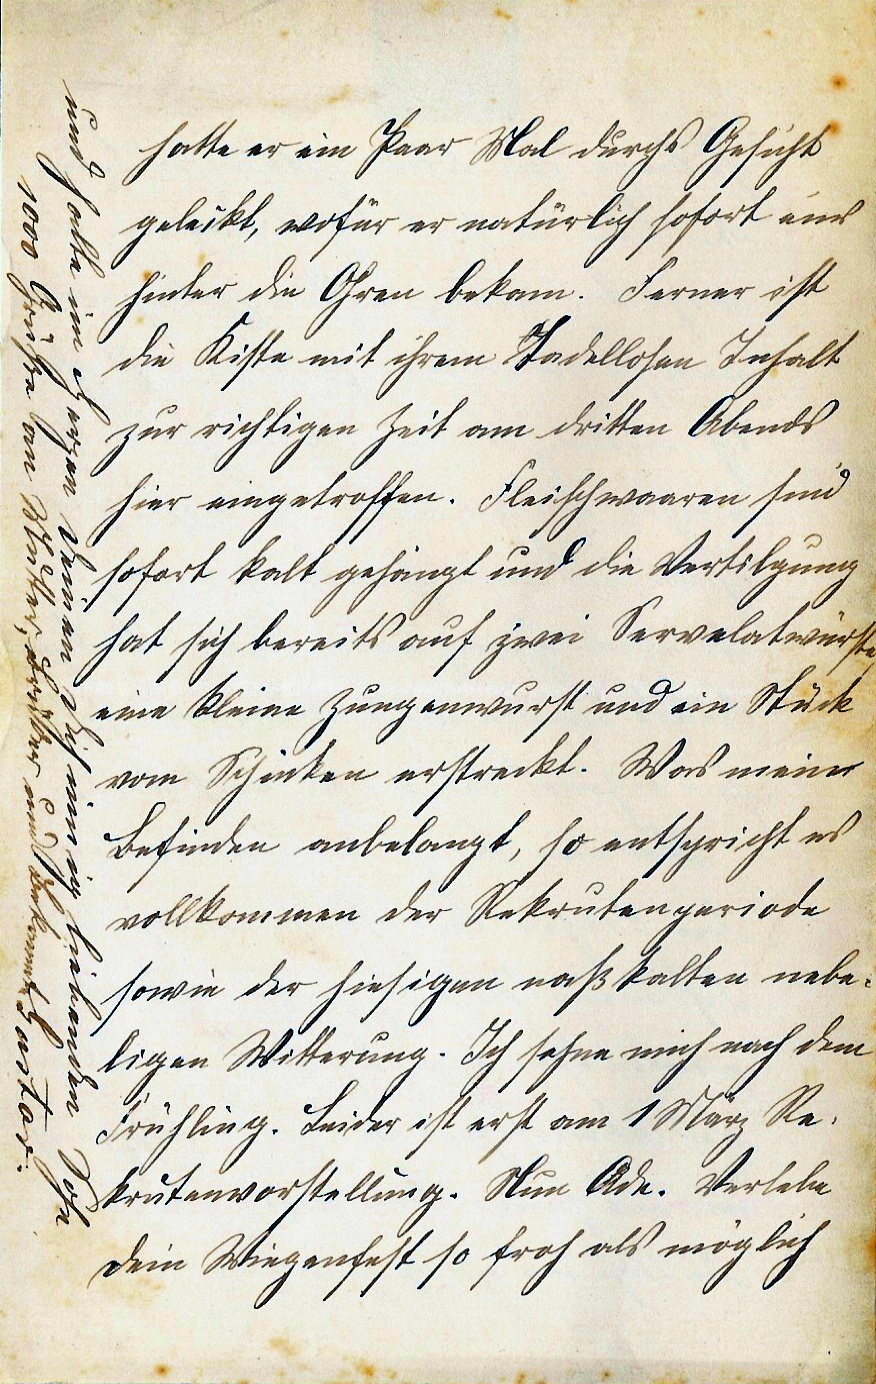 hatte er ein Paar Mal durchs Gesicht
geleckt, wofür er natürlich sofort eins
hinter die Ohren bekam. Ferner ist
die Kiste mit ihrem Tadellosen Inhalt
zur richtigen Zeit am dritten Abends
hier eingetroffen. Fleischwaaren sind
sofort kalt gehängt und die Vertilgung
hat sich bereits auf zwei Servelatwürste
eine kleine Zungenwurst und ein Stück
vom Schinken erstreckt. Was mein
Befinden anbelangt, so entspricht es
vollkommen der Rekrutenperiode
sowie der hiesigen naßkalten nebe-
ligen Witterung. Ich sehne mich nach dem
Frühling. Leider ist erst am 1 März Re-
krutenvorstellung. Nun Ade. Verlebe
Dein Wiegenfest so froh als möglich
und halte im Herzen Deinen Dich innig liebenden Sohn
1000 Grüße an Mutter, Brüder und Gustav.